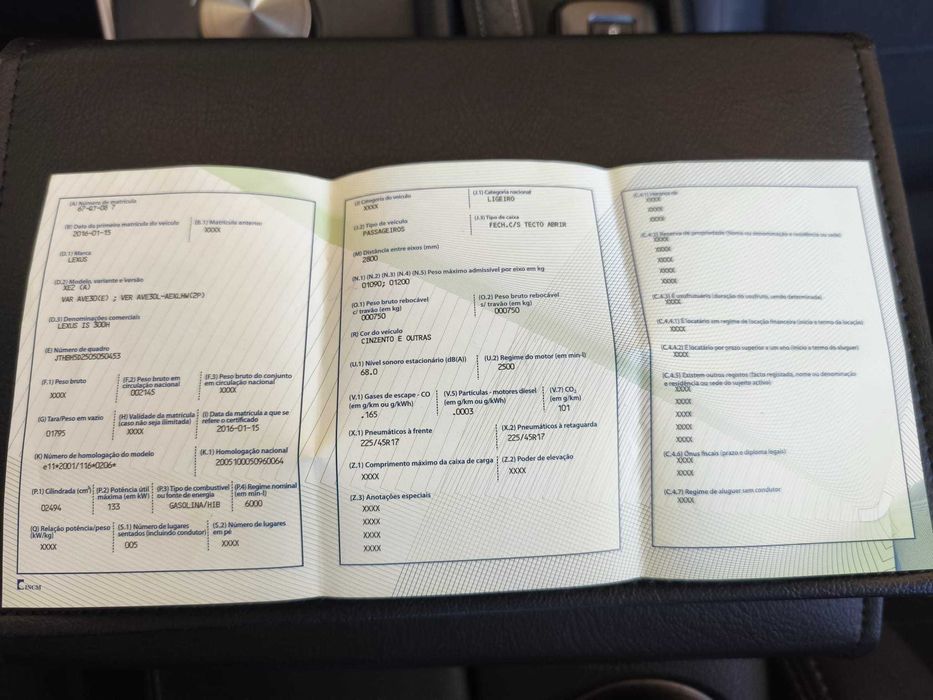 (A) Número de matrícula
67-QT-08 7
(B) Data da primeira matrícula do veículo
2016-01-15
(B.1) Matrícula anterior
XXXX
(D.1) Marca
LEXUS
(D.2) Modelo, variante e versão
XE2 (A)
VAR AVE3D(E) ; VER AVE30L-AEXLHW(2P)
(D.3) Denominações comerciais
LEXUS IS 300H
(E) Número de quadro
JTHBH5D2505050453
(F.1) Peso bruto
XXXX
(F.2) Peso bruto em
circulação nacional
002145
(F.3) Peso bruto do conjunto
em circulação nacional
XXXX
(G) Tara/Peso em vazio
01795
(H) Validade da matrícula
(caso não seja ilimitada)
XXXX
(I) Data da matrícula a que se
refere o certificado
2016-01-15
(K) Número de homologação do modelo
e11*2001/116*0206*
(K.1) Homologação nacional
2005100050960064
(P.1) Cilindrada (cm³)
02494
(P.2) Potência útil
máxima (em kW)
133
(P.3) Tipo de combustível
ou fonte de energia
GASOLINA/HIB
(P.4) Regime nominal
(em min-l)
6000
(Q) Relação potência/peso
(kW/kg)
XXXX
(S.1) Número de lugares
sentados (incluindo condutor)
005
(S.2) Número de lugares
em pé
XXXX
INCM
(J) Categoria do veículo
XXXX
(J.1) Categoria nacional
LIGEIRO
(J.2) Tipo de veículo
PASSAGEIROS
(J.3) Tipo de caixa
FECH.C/S TECTO ABRIR
(M) Distância entre eixos (mm)
2800
(N.1) (N.2) (N.3) (N.4) (N.5) Peso máximo admissível por eixo em kg
01090; 01200
(O.1) Peso bruto rebocável
c/ travão (em kg)
000750
(O.2) Peso bruto rebocável
s/ travão (em kg)
000750
(R) Cor do veículo
CINZENTO E OUTRAS
(U.1) Nível sonoro estacionário (dB(A))
68.0
(U.2) Regime do motor (em min-l)
2500
(V.1) Gases de escape - CO
(em g/km ou g/kWh)
.165
(V.5) Partículas - motores diesel
(em g/km ou g/kWh)
.0003
(V.7) CO₂
(em g/km)
101
(X.1) Pneumáticos à frente
225/45R17
(X.2) Pneumáticos à retaguarda
225/45R17
(Z.1) Comprimento máximo da caixa de carga
XXXX
(Z.2) Poder de elevação
XXXX
(Z.3) Anotações especiais
XXXX
XXXX
XXXX
XXXX
XXXX
XXXX
XXXX
(C.4.2) Reserva de propriedade (Nome ou denominação e residência ou sede)
XXXX
XXXX
XXXX
XXXX
(C.4.3) É usufrutuário (duração do usufruto, sendo determinada)
XXXX
(C.4.4.1) É locatário em regime de locação financeira (início e termo da locação)
XXXX
(C.4.4.2) É locatário por prazo superior a um ano (início e termo do aluguer)
XXXX
(C.4.5) Existem outros registos (facto registado, nome ou denominação
e residência ou sede do sujeito activo)
XXXX
XXXX
XXXX
XXXX
XXXX
(C.4.6) Ónus fiscais (prazo e diploma legais)
XXXX
XXXX
(C.4.7) Regime de aluguer sem condutor
XXXX